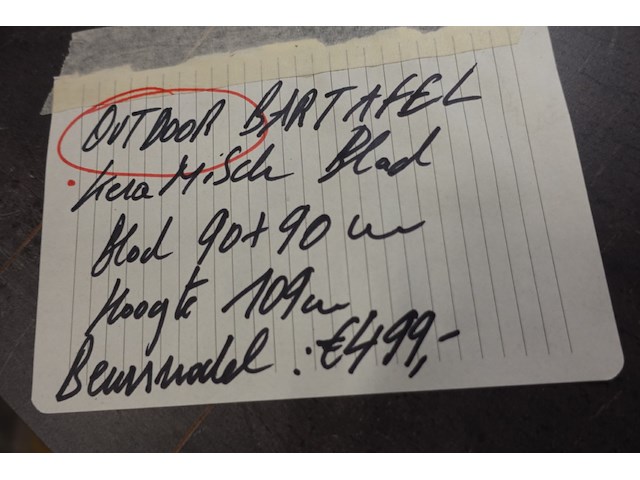 OUTDOOR BARTAFEL
Keramisch Blad
Blad 90+90 cm
Hoogte 109cm
Beursmodel : €499,-